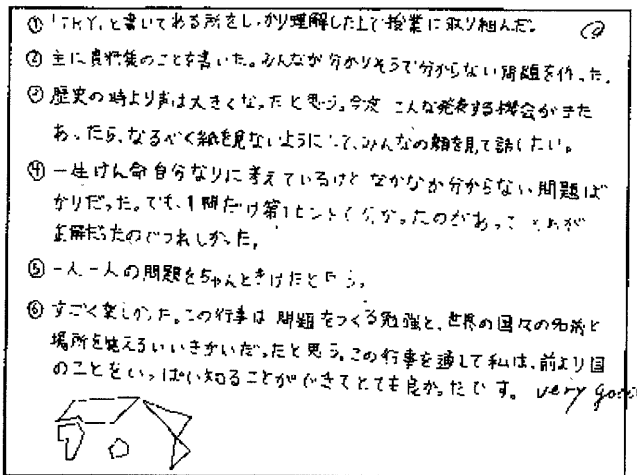 ①「TRY」と書いてある所をしっかり理解した上で授業に取り組んだ。
②主に貴族のことを書いた。みんなが分かりそうで分からない問題を作った。
③歴史の時より声は大きくなったと思う。今度こんな発表する機会がまた
あったら、なるべく紙を見ないようにして、みんなの顔を見て話したい。
④一生けん命自分なりに考えているけどなかなか分からない問題ば
かりだった。でも、1問だけ第1ヒントで分かったのがあって それが
正解だったのでうれしかった。
⑤一人一人の問題をちゃんときけたと思う。
⑥すごく楽しかった。この行事は 問題をつくる勉強と、世界の国々の名前と
場所を覚えるいいきかいだったと思う。この行事を通して私は、前より国
のことをいっぱい知ることができてとても良かったです。 very good